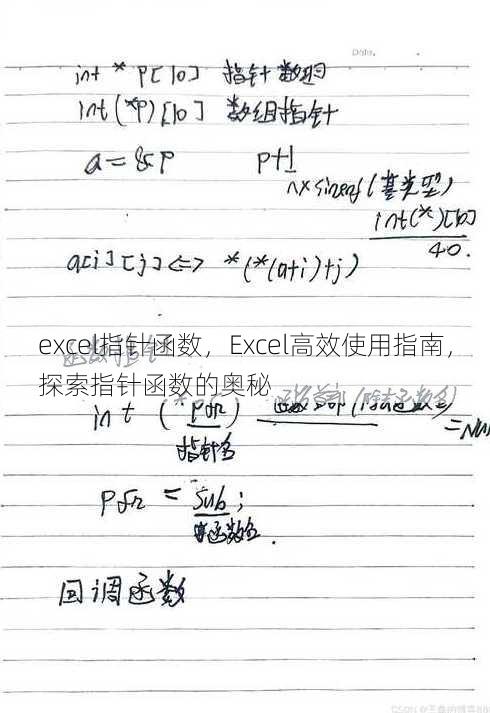 Date.
int * p[10] 指针数组
int(*p)[10] 数组指针
a=&p p+1
n×sizeof(基类型)
int(*)[10]
40.
a[i][j]<=>*(*(a+i)+j)
函数指针
excel指针函数，Excel高效使用指南，
探索指针函数的奥秘
int (*pfn)
指针名
pfn = sub;
函数名.
回调函数